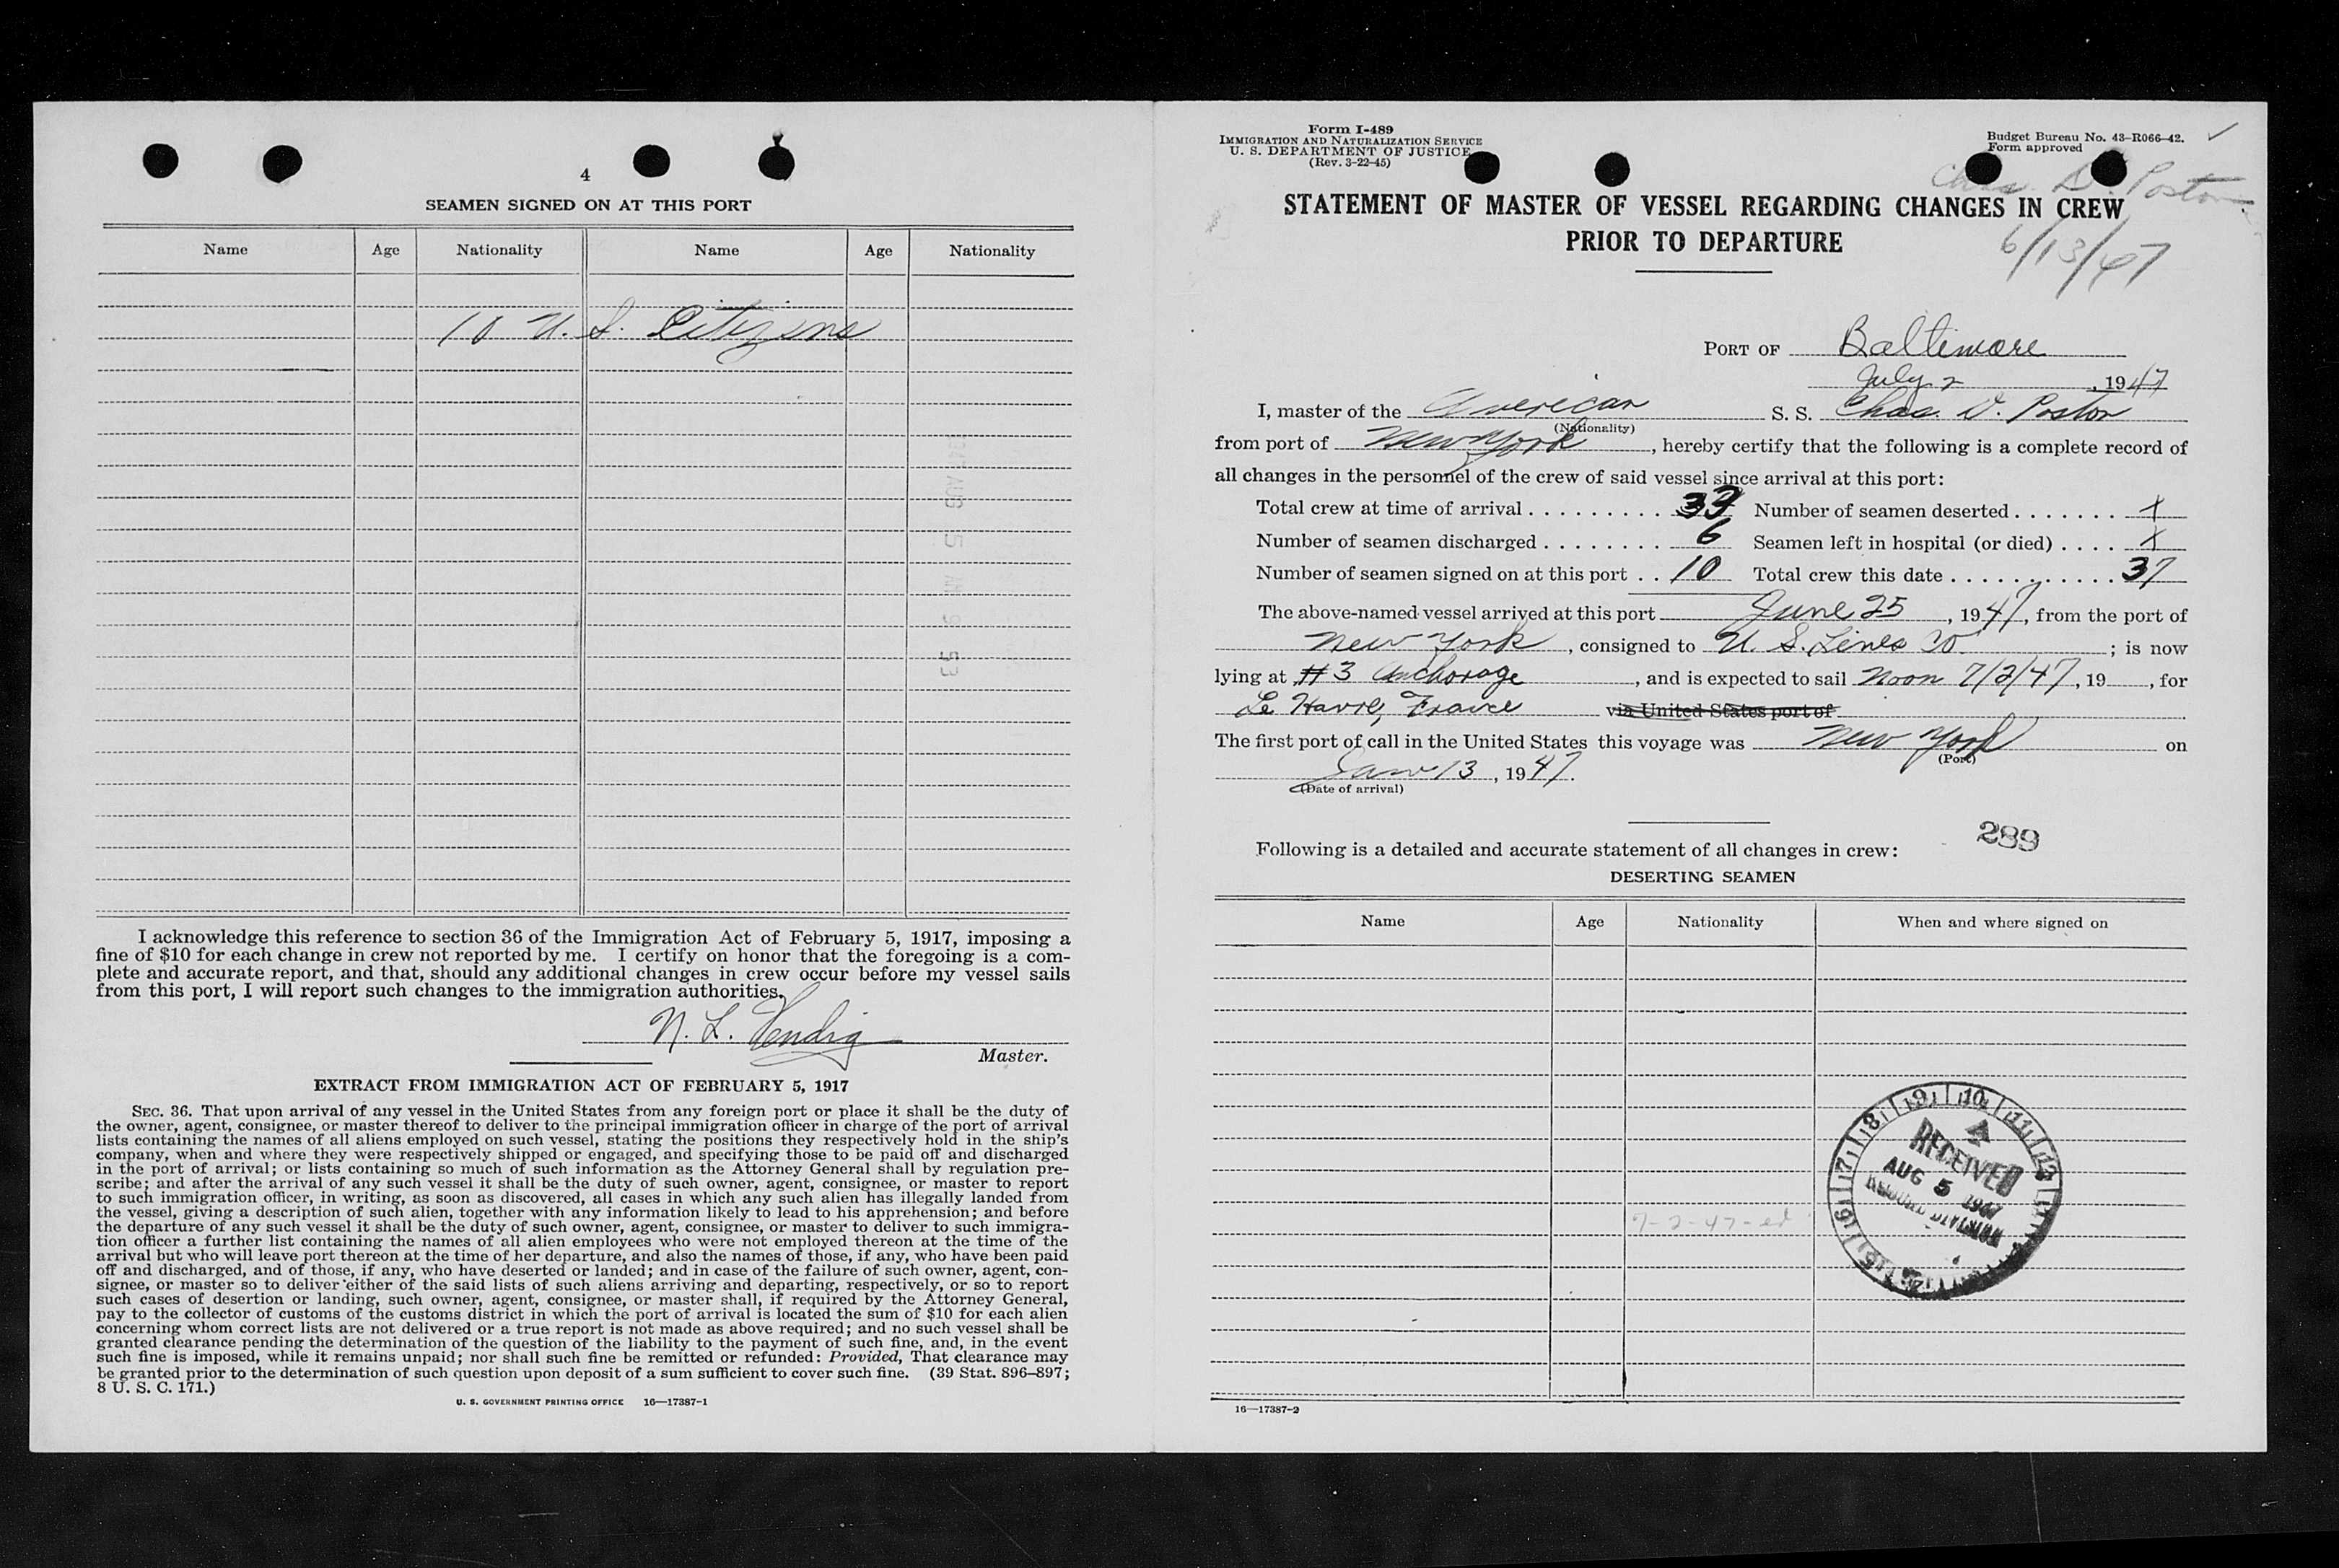 4
SEAMEN SIGNED ON AT THIS PORT
Name Age Nationality Name Age Nationality
10 U. S. Citizens
AUG 5 AM 9 53
I acknowledge this reference to section 36 of the Immigration Act of February 5, 1917, imposing a
fine of $10 for each change in crew not reported by me. I certify on honor that the foregoing is a com-
plete and accurate report, and that, should any additional changes in crew occur before my vessel sails
from this port, I will report such changes to the immigration authorities.
N. L. Vendig
Master.
EXTRACT FROM IMMIGRATION ACT OF FEBRUARY 5, 1917
SEC. 36. That upon arrival of any vessel in the United States from any foreign port or place it shall be the duty of
the owner, agent, consignee, or master thereof to deliver to the principal immigration officer in charge of the port of arrival
lists containing the names of all aliens employed on such vessel, stating the positions they respectively hold in the ship's
company, when and where they were respectively shipped or engaged, and specifying those to be paid off and discharged
in the port of arrival; or lists containing so much of such information as the Attorney General shall by regulation pre-
scribe; and after the arrival of any such vessel it shall be the duty of such owner, agent, consignee, or master to report
to such immigration officer, in writing, as soon as discovered, all cases in which any such alien has illegally landed from
the vessel, giving a description of such alien, together with any information likely to lead to his apprehension; and before
the departure of any such vessel it shall be the duty of such owner, agent, consignee, or master to deliver to such immigra-
tion officer a further list containing the names of all alien employees who were not employed thereon at the time of the
arrival but who will leave port thereon at the time of her departure, and also the names of those, if any, who have been paid
off and discharged, and of those, if any, who have deserted or landed; and in case of the failure of such owner, agent, con-
signee, or master so to deliver either of the said lists of such aliens arriving and departing, respectively, or so to report
such cases of desertion or landing, such owner, agent, consignee, or master shall, if required by the Attorney General,
pay to the collector of customs of the customs district in which the port of arrival is located the sum of $10 for each alien
concerning whom correct lists are not delivered or a true report is not made as above required; and no such vessel shall be
granted clearance pending the determination of the question of the liability to the payment of such fine, and, in the event
such fine is imposed, while it remains unpaid; nor shall such fine be remitted or refunded: Provided, That clearance may
be granted prior to the determination of such question upon deposit of a sum sufficient to cover such fine. (39 Stat. 896–897;
8 U. S. C. 171.)
U. S. GOVERNMENT PRINTING OFFICE 16—17387-1
Form I-489
IMMIGRATION AND NATURALIZATION SERVICE
U. S. DEPARTMENT OF JUSTICE
(Rev. 3-22-45)
Budget Bureau No. 43–R066–42.
Form approved
Chas. D. Poston
STATEMENT OF MASTER OF VESSEL REGARDING CHANGES IN CREW
PRIOR TO DEPARTURE
6/13/47
PORT OF Baltimore
July 2, 1947
I, master of the American S. S. Chas. D. Poston
(Nationality)
from port of New York, hereby certify that the following is a complete record of
all changes in the personnel of the crew of said vessel since arrival at this port:
Total crew at time of arrival 33 Number of seamen deserted X
Number of seamen discharged 6 Seamen left in hospital (or died) X
Number of seamen signed on at this port 10 Total crew this date 37
The above-named vessel arrived at this port June 25, 1947, from the port of
New York, consigned to U. S. Lines Co; is now
lying at #3 Anchorage, and is expected to sail Noon 7/2/47, 19, for
Le Havre, France via United States port of
The first port of call in the United States this voyage was New York on
(Port)
Jan 13, 1947.
(Date of arrival)
289
Following is a detailed and accurate statement of all changes in crew:
DESERTING SEAMEN
Name Age Nationality When and where signed on
RECEIVED
AUG 5 1947
7-2-47-ed
16—17387-2